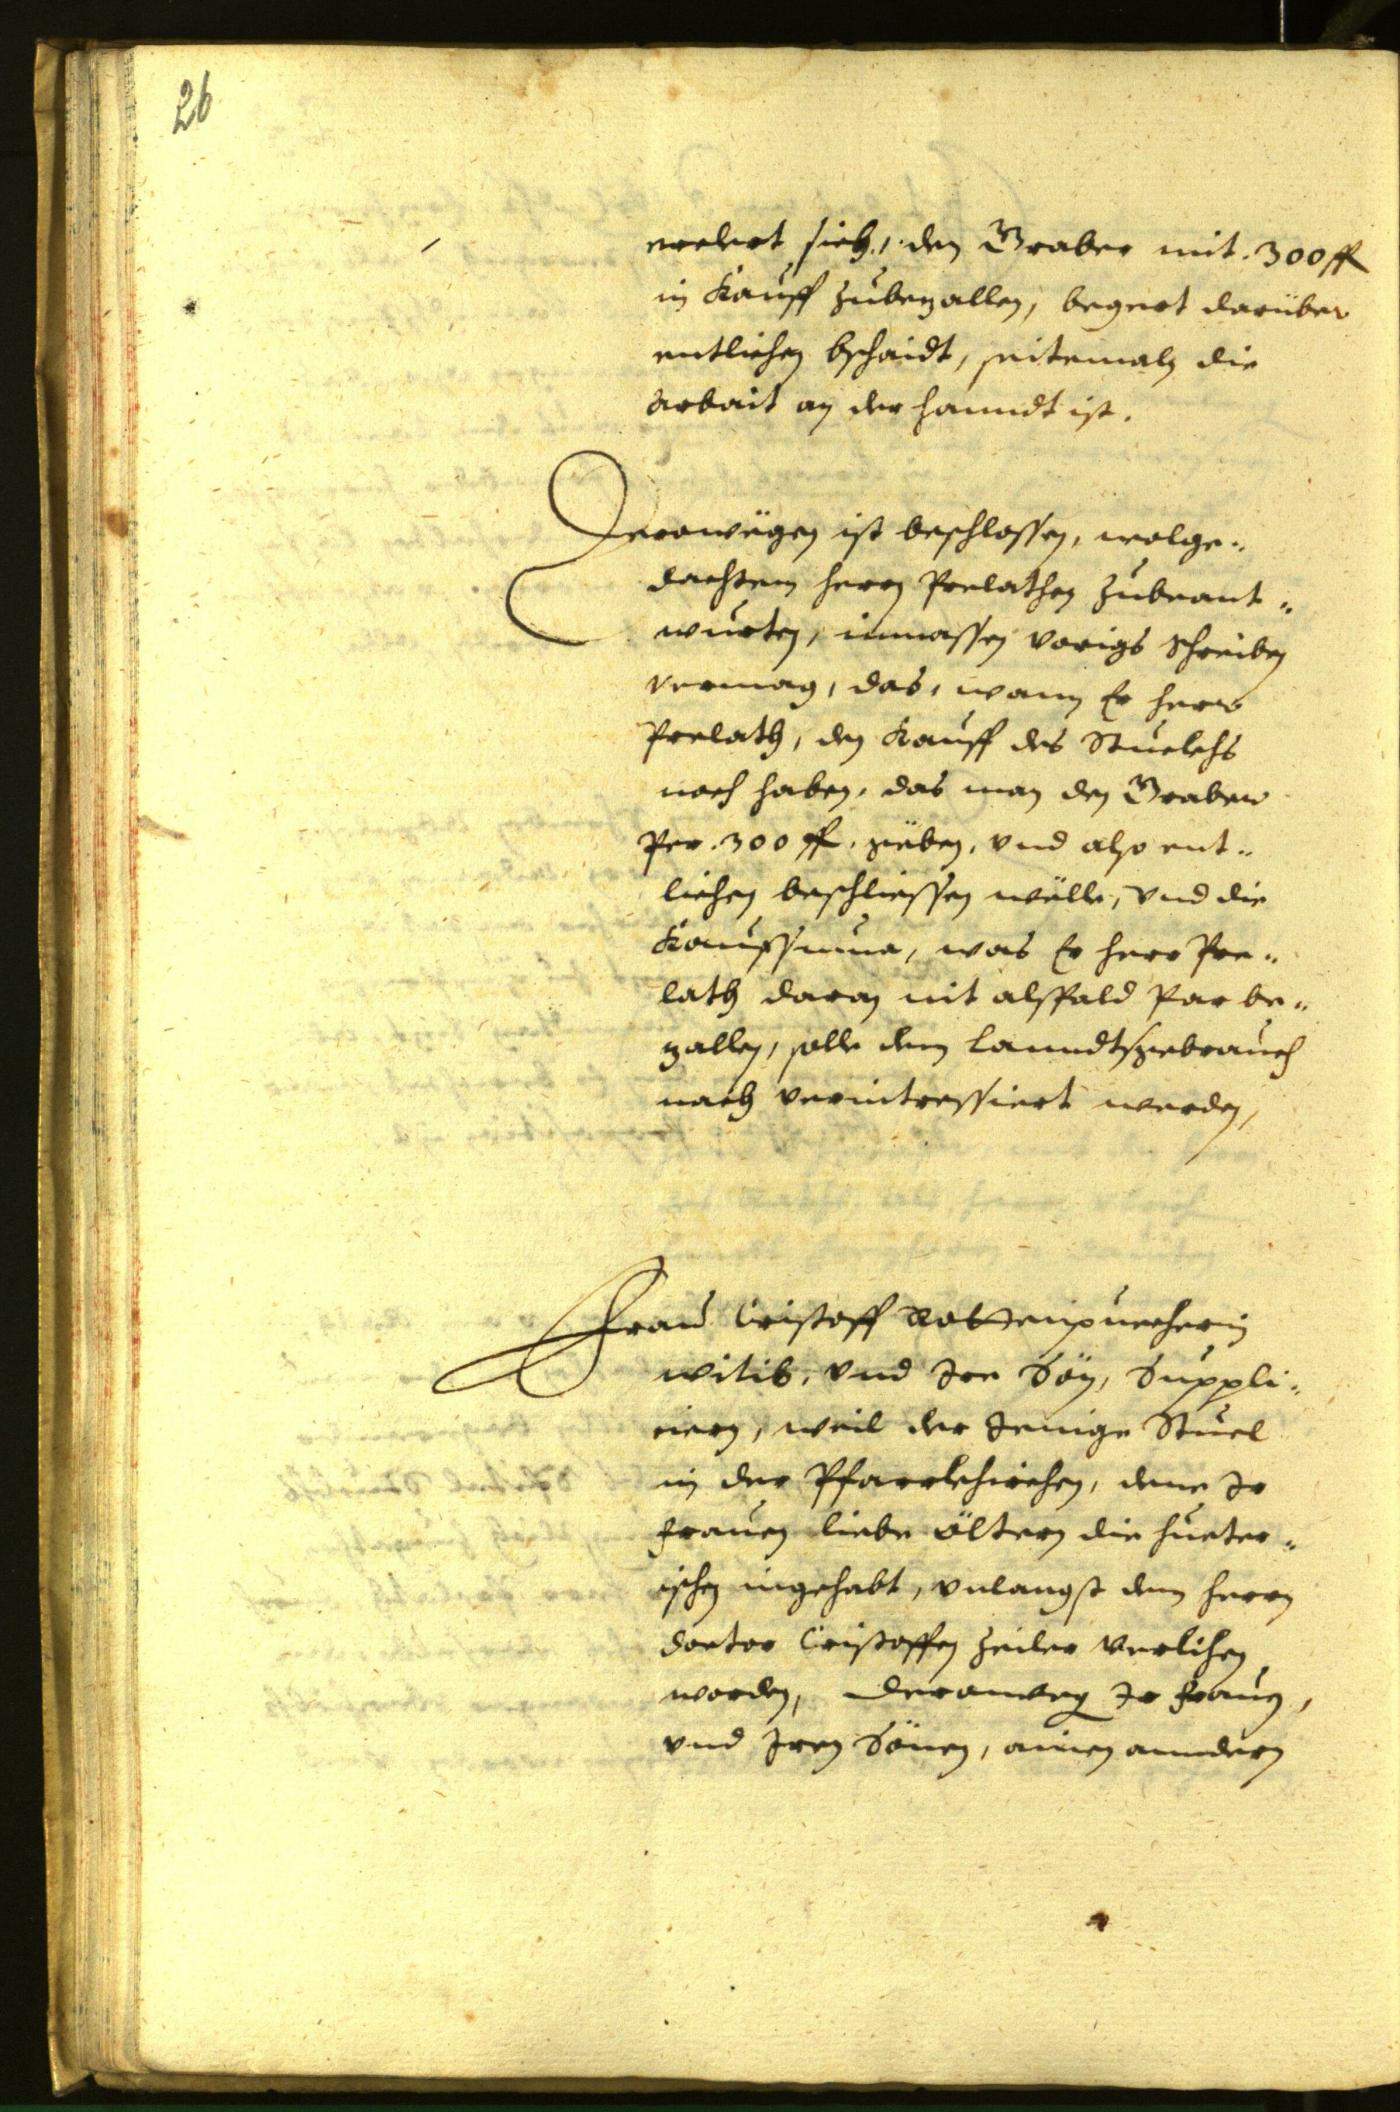 26
erclert sich, den Graber mit . 300 fl
in Kauff zubezallen, begert darüber
entlichen bschaidt, seitemaln die
Arbait an der hanndt ist.
Derowegen ist beschlossen, wolge¬
dachtem herrn Prelathen zubeant¬
wurten, inmassen vorigs schreiben
vermag, das, wann Er herr
Prelath, den Kauff des
noch haben, das man den Graber
Per . 300 fl. geben, vnd also ent¬
lichen beschliessen wölle, vnd die
Kauffsuma, was Er herr Pre¬
lath daran nit alspald Par be¬
zallen, solle dem Lanndtsgebrauch
nach verintressiert werden,
Frau Cristoff Rottenpuecherin
witib, vnd Ire Sön, Suppli¬
ciern, weil der Jenige Stuel
in der Pfarrkhirchen, dene Ir
frauen liebe Öltern die hueter¬
ischen ingehabt, vnlangst dem herrn
doctor Cristoffen Zeiler verlihen
worden, Ir frauen,
vnd Iren Sönen, ainen anndern